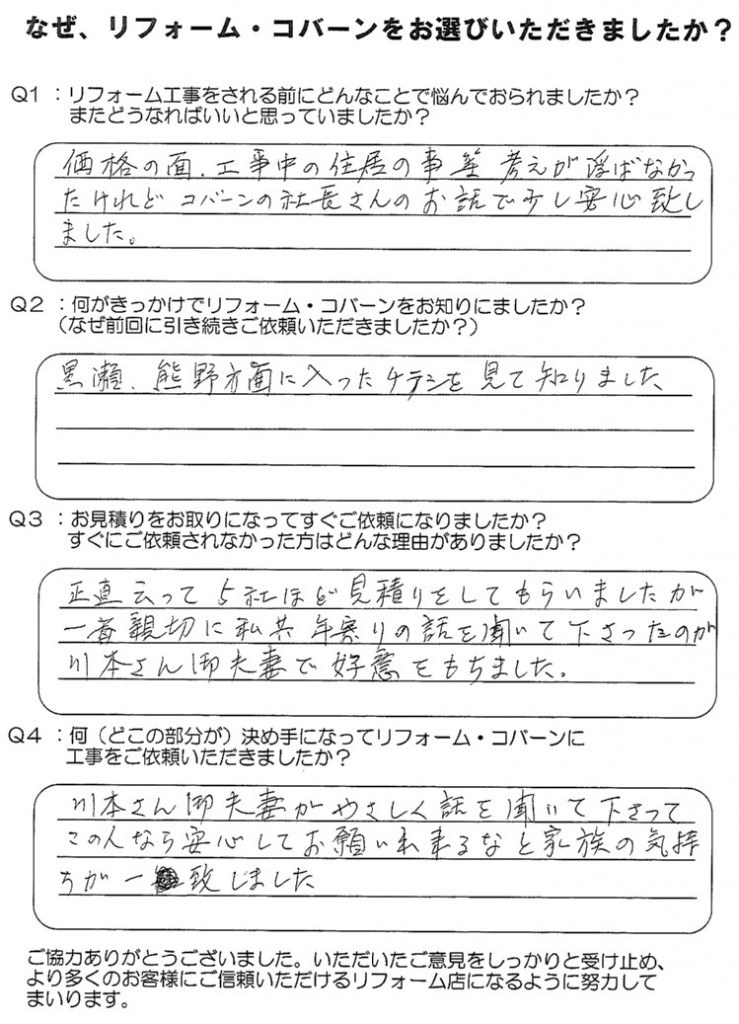 なぜ、リフォーム・コバーンをお選びいただきましたか？
Q1：リフォーム工事をされる前にどんなことで悩んでおられましたか？
またどうなればいいと思っていましたか？
価格の面、工事中の住居の事等 考えが浮ばなかっ
たけれど コバーンの社長さんのお話で少し安心致し
ました。
Q2：何がきっかけでリフォーム・コバーンをお知りにましたか？
（なぜ前回に引き続きご依頼いただきましたか？）
黒瀬、熊野方面に入ったチラシを見て知りました
Q3：お見積りをお取りになってすぐご依頼になりましたか？
すぐにご依頼されなかった方はどんな理由がありましたか？
正直云って5社ほど見積りをしてもらいましたが
一番親切に私共年寄りの話を聞いて下さったのが
川本さん御夫妻で好意をもちました。
Q4：何（どこの部分が）決め手になってリフォーム・コバーンに
工事をご依頼いただきましたか？
川本さん御夫妻がやさしく話を聞いて下さって
この人なら安心してお願い出来るなと家族の気持
ちが一致じました
ご協力ありがとうございました。いただいたご意見をしっかりと受け止め、
より多くのお客様にご信頼いただけるリフォーム店になるように努力して
まいります。